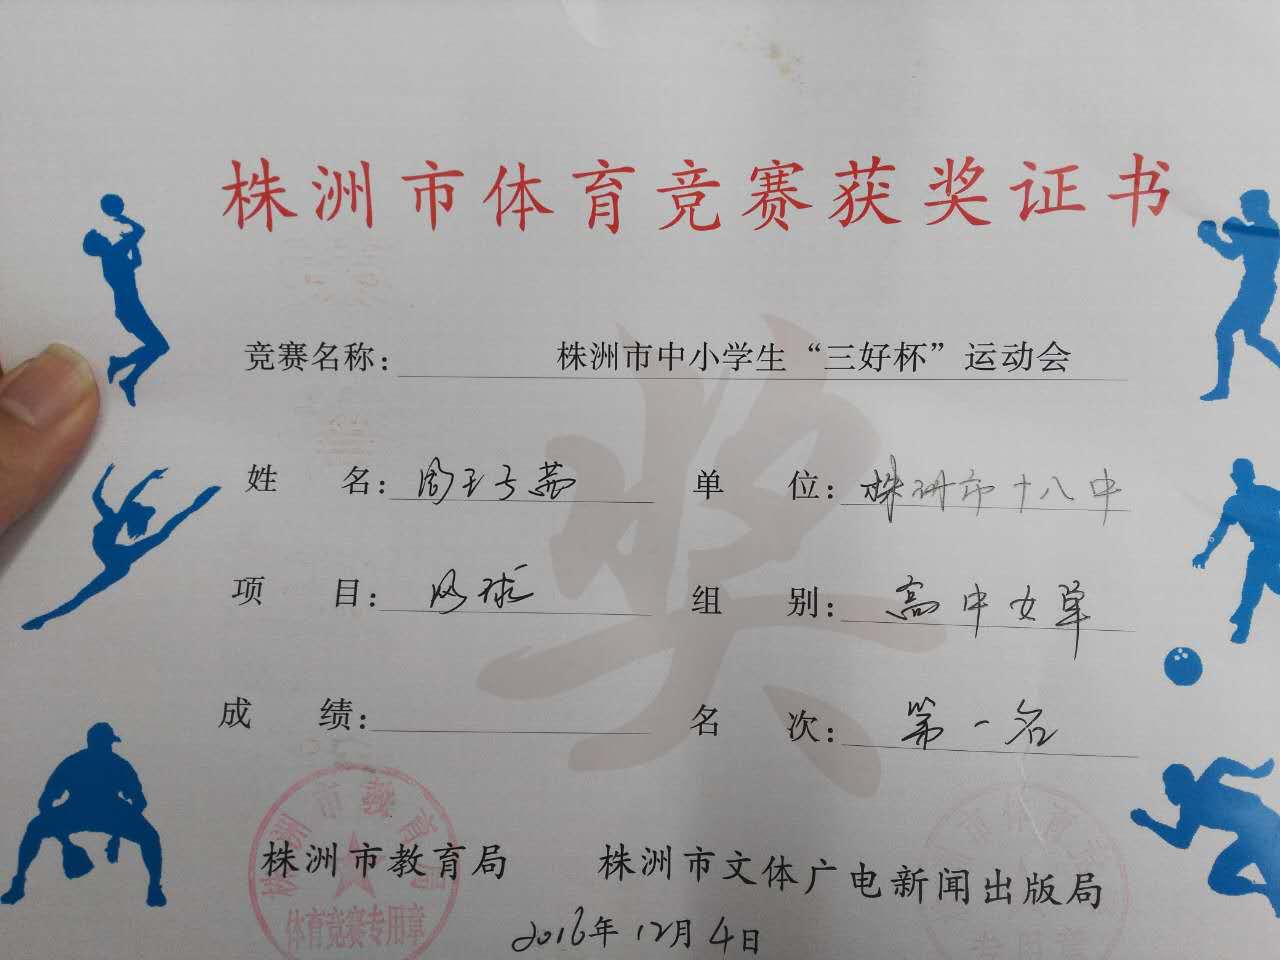 株洲市体育竞赛获奖证书
竞赛名称： 株洲市中小学生“三好杯”运动会
姓 名：周玉子茜 单 位：株洲市十八中
项 目：网球 组 别：高中女单
成 绩： 名 次：第一名
株洲市教育局
体育竞赛专用章
株洲市教育局 株洲市文体广电新闻出版局
2016年12月4日